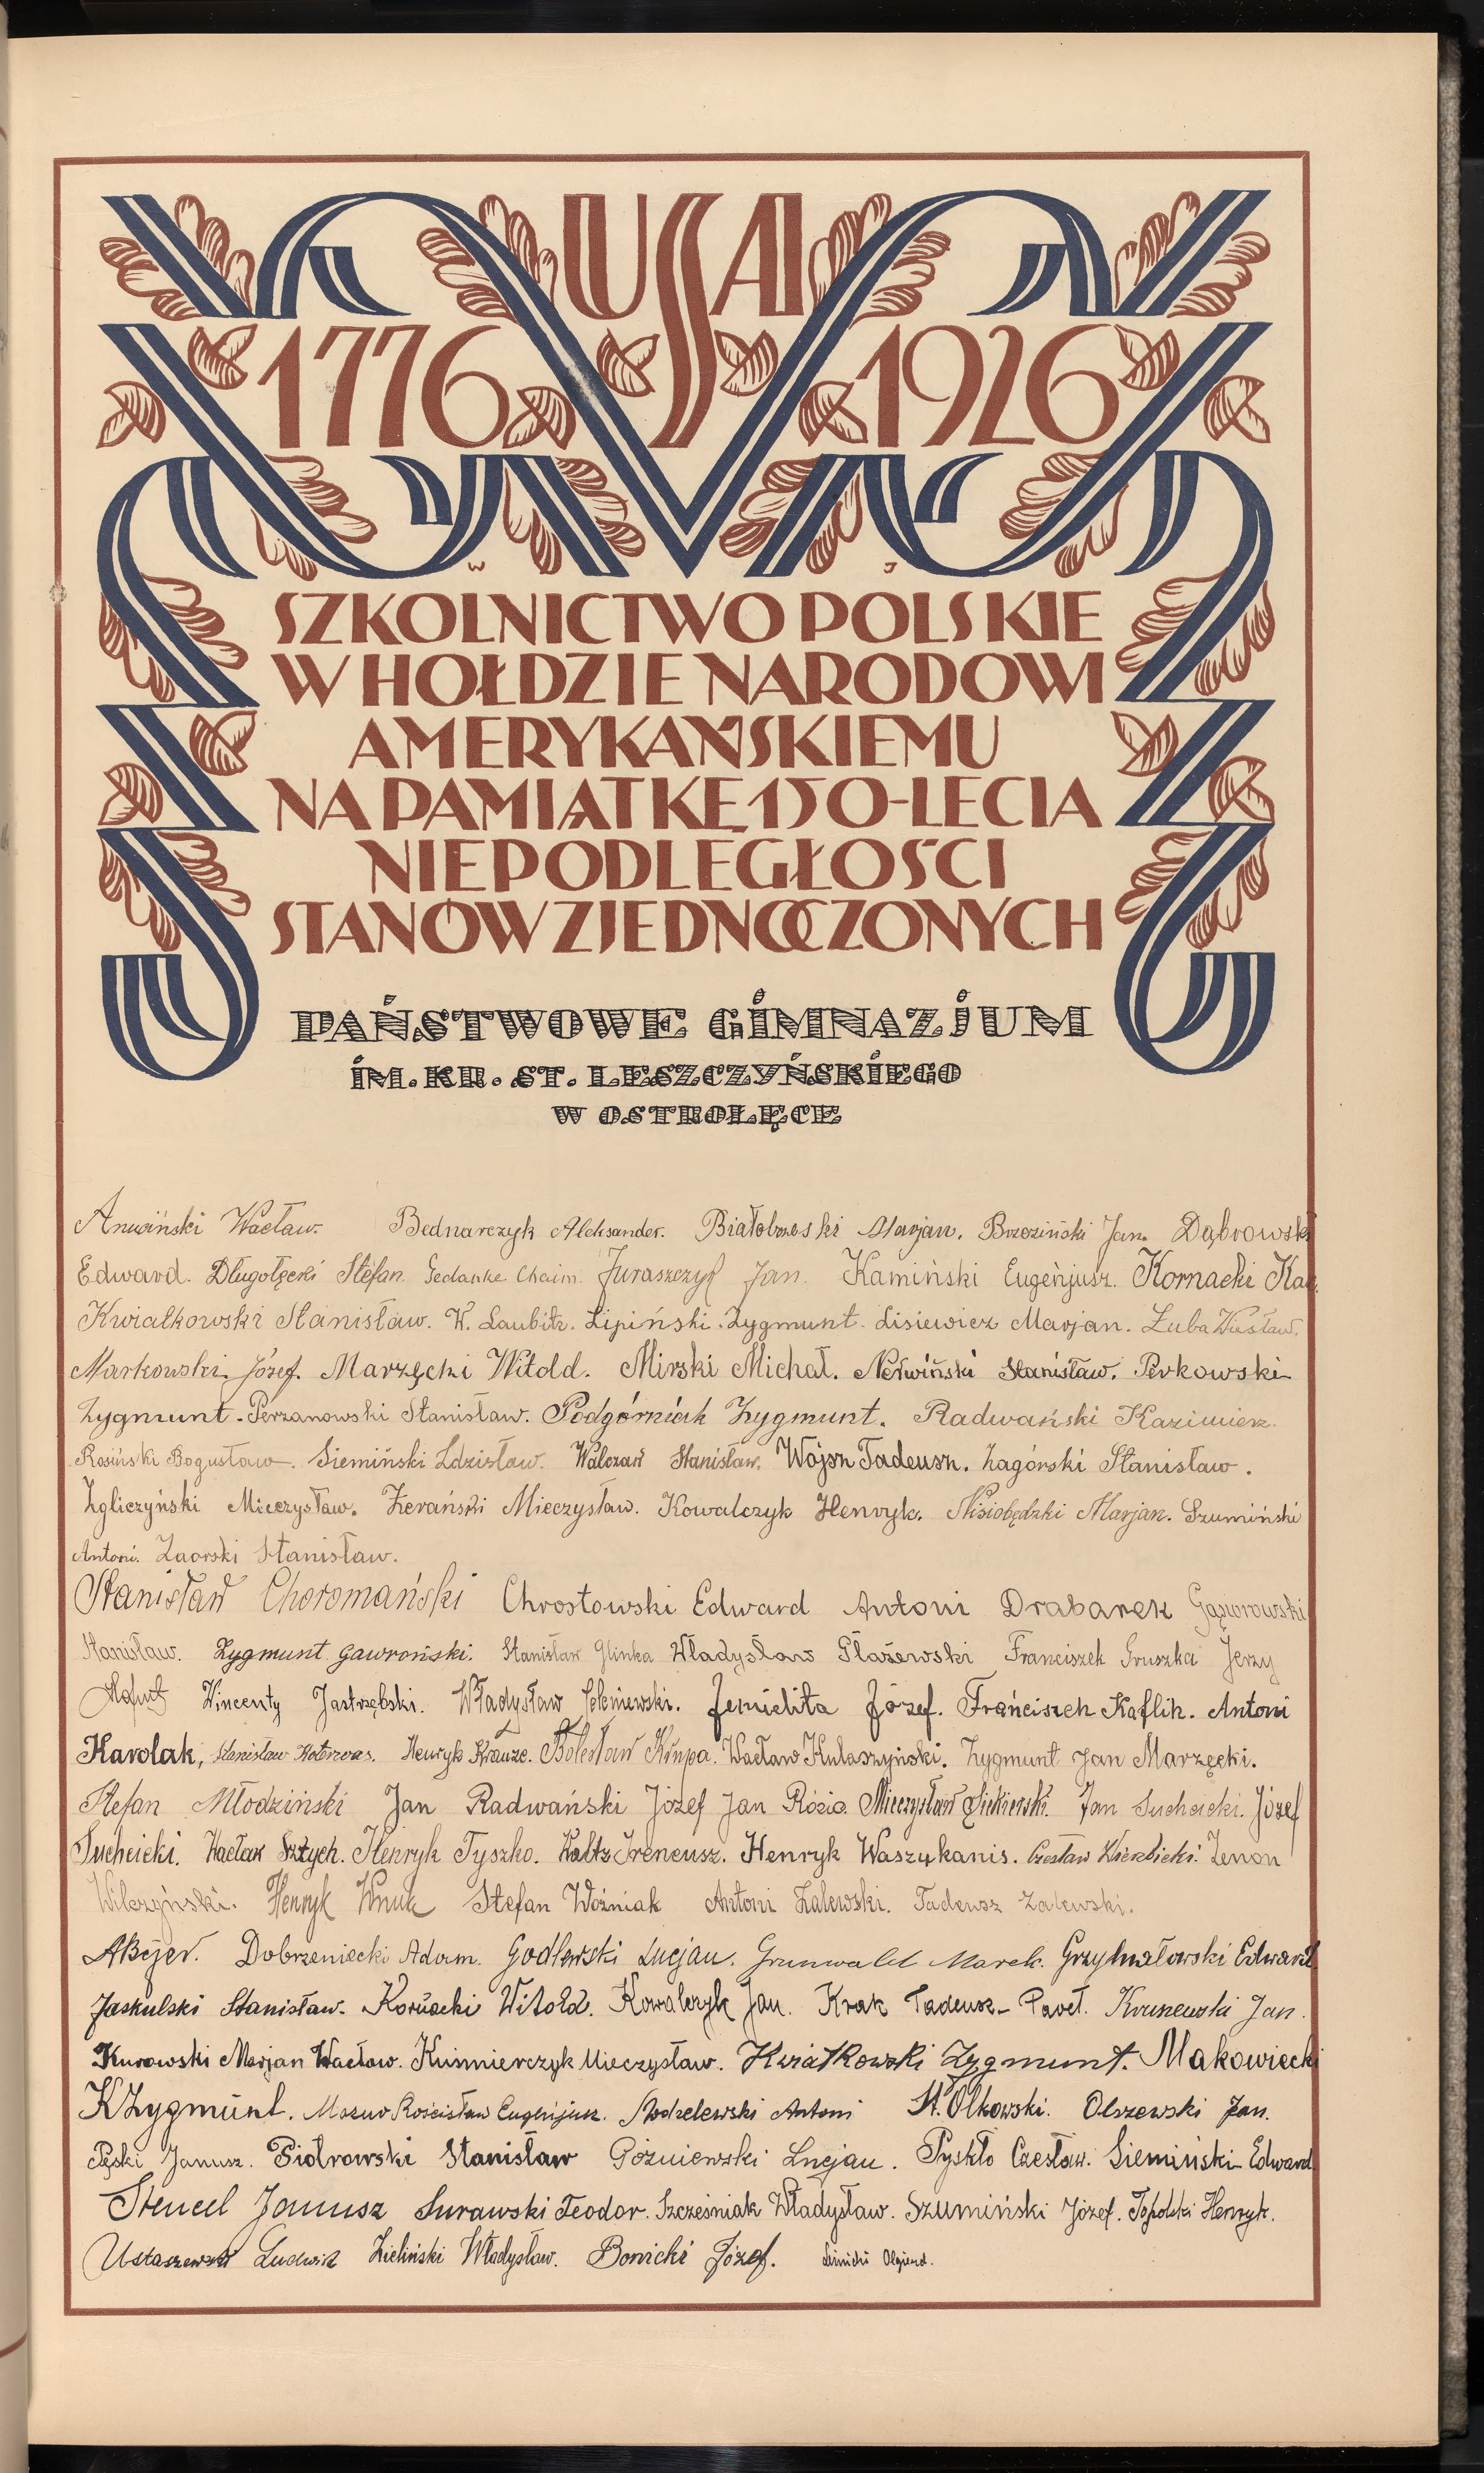 USA
1776 1926
W J
SZKOLNICTWO POLSKIE
W HOŁDZIE NARODOWI
AMERYKAŃSKIEMU
NA PAMIĄTKĘ 150-LECIA
NIEPODLEGŁOŚCI
STANÓW ZJEDNOCZONYCH
PAŃSTWOWE GIMNAZJUM
IM. KR. ST. LESZCZYŃSKIEGO
W OSTROŁĘCE
Wacław. Bednarczyk Aleksander. Białobrzeski Marjan. Brzeziński Jan. Dąbrowski
Edward. Długołęcki Stefan. Gedanke Chaim. Juraszczyk Jan. Kamiński Eugenjusz. Kornacki
Kwiatkowski Stanisław. W. Laubitz. Lipiński Zygmunt. Lisiewicz Marjan. Łuba Wiesław.
Markowski Józef. Marzęcki Witold. Mirski Michał. Nerwiński Stanisław. Perkowski
Zygmunt. Perzanowski Stanisław. Podgórniak Zygmunt. Radwański Kazimierz.
Rosiński Bogusław. Siemiński Zdzisław. Walczak Stanisław. Wójsz Tadeusz. Zagórski Stanisław.
Zgliczyński Mieczysław. Żerański Mieczysław. Kowalczyk Henryk. Nisiobędzki Marjan. Szumiński
Antoni. Zaorski Stanisław.
Stanisław Choromański Chrostowski Edward Antoni Drabarek Gąsiorowski
Stanisław. Zygmunt Gawroński. Stanisław Glinka Władysław Głażewski Franciszek Gruszka Jerzy
Wincenty Jastrzębski. Władysław Jemielita Józef. Franciszek Kaflik. Antoni
Karolak, Stanisław Henryk Krauze. Bolesław Krupa. Wacław Kulaszyński. Zygmunt Jan Marzęcki.
Stefan Młodziński Jan Radwański Józef Jan Rózio. Mieczysław Siekierski. Jan Suchcicki. Józef
Suchcicki. Wacław Sztych. Henryk Tyszko. Waltz Ireneusz. Henryk Waszukanis. Czesław Wierzbicki. Zenon
Wilczyński. Henryk Wnuk Stefan Woźniak Antoni Zalewski. Tadeusz Zalewski.
ABejer. Dobrzeniecki Adam. Godlewski Lucjan. Grunwald Marek. Grzymałowski Edward
Jaskulski Stanisław. Kornacki Witold. Kowalczyk Jan. Krak Tadeusz-Paweł. Kruszewski Jan.
Kurowski Marjan Wacław. Kuśmierczyk Mieczysław. Kwiatkowski Zygmunt. Makowiecki
KZygmunt. Mazur Rościsław Eugenjusz. Modzelewski Antoni St. Olkowski. Olszewski Jan.
Pęski Janusz. Piotrowski Stanisław Późniewski Lucjan. Pyskło Czesław. Siemiński Edward
Stencel Janusz Surawski Teodor. Szcześniak Władysław. Szumiński Józef. Topolski Henryk.
Ustaszewski Ludwik Zieliński Władysław. Bonicki Józef. Olgierd.